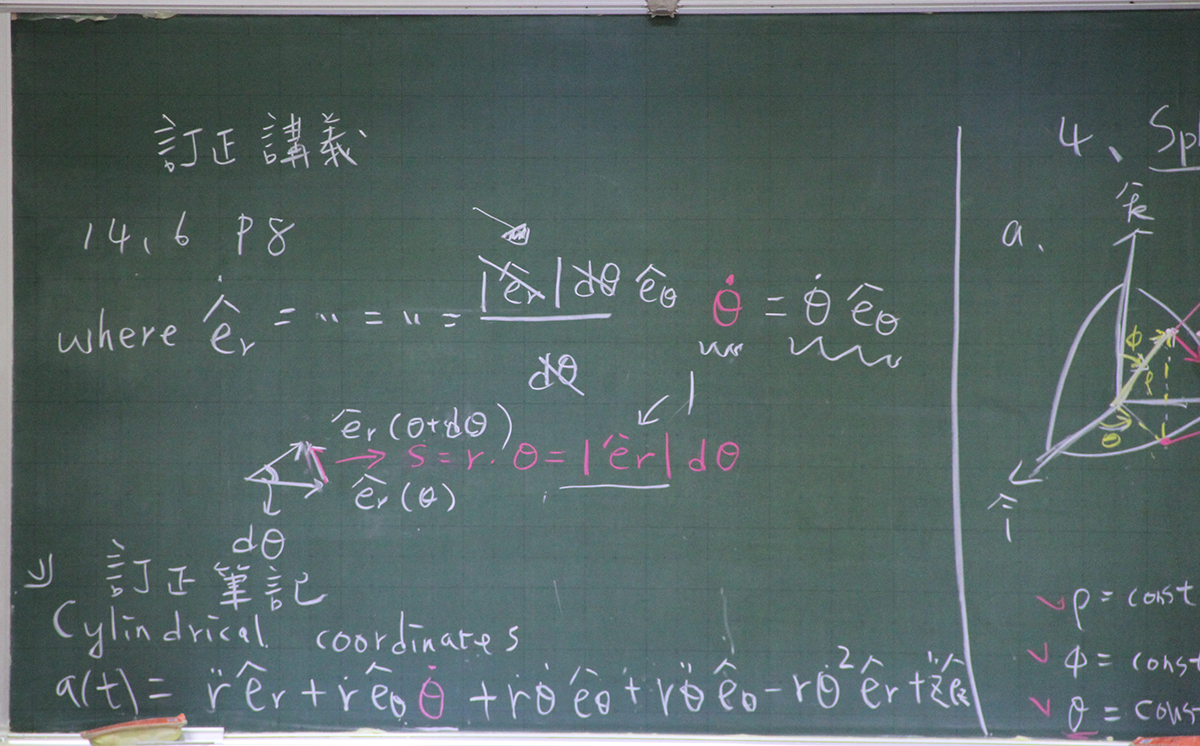 訂正 講義
14, 6 P8
where ė̂r = " = " = |êr| dθ êθ / dθ θ̇ = θ̇ êθ
1
êr(θ+dθ)
S = r · θ = |êr| dθ
êr(θ)
dθ
訂正 筆記
Cylindrical coordinates
a(t) = r̈ êr + ṙ êθ θ̇ + ṙ θ̇ êθ + r θ̈ êθ - r θ̇² êr + z̈ êz
4、Sp
a.
k̂
φ
ρ
θ
î
✓ ρ = const
✓ φ = const
✓ θ = cons